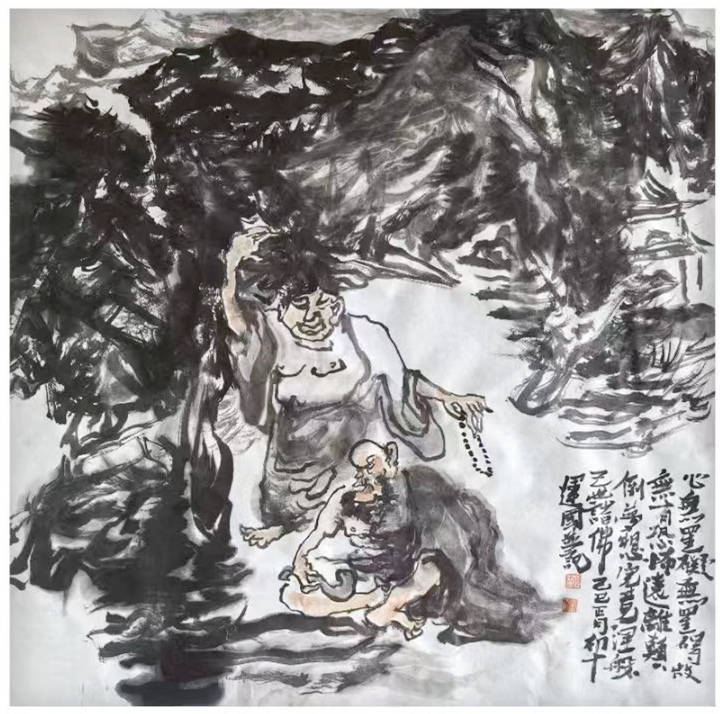 心無罣礙無罣碍故
無有恐怖遠離顛
倒夢想究竟涅槃
三世諸佛 正月初十
建國並記